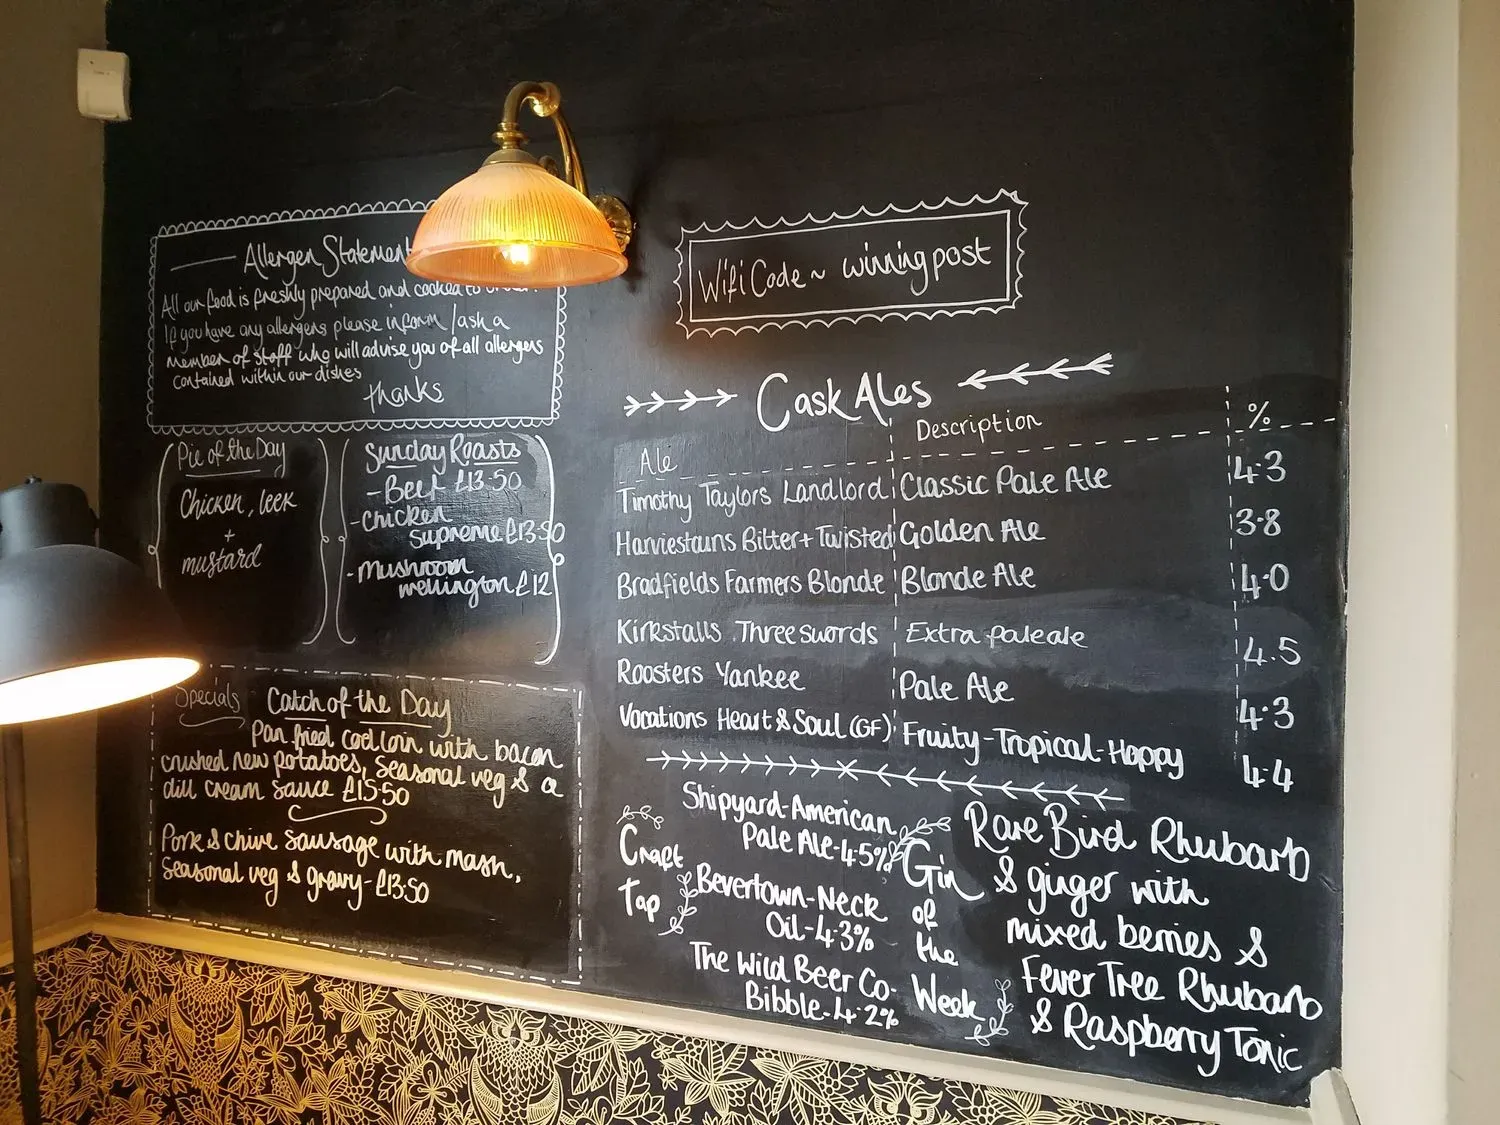 Allergen Statement
All our food is freshly prepared and cooked to order.
If you have any allergens please inform / ask a
member of staff who will advise you of all allergens
contained within our dishes
thanks
Pie of the Day
Chicken, leek
+
mustard
Sunday Roasts
- Beef £13.50
- Chicken
supreme £13.50
- Mushroom
wellington £12
Specials
Catch of the Day
Pan fried cod loin with bacon
crushed new potatoes, seasonal veg & a
dill cream sauce £15.50
Pork & chive sausage with mash,
seasonal veg & gravy - £13.50
Wifi Code ~ winningpost
Cask Ales
Ale Description %
Timothy Taylors Landlord Classic Pale Ale 4.3
Harviestouns Bitter + Twisted Golden Ale 3.8
Bradfields Farmers Blonde Blonde Ale 4.0
Kirkstalls Three swords Extra pale ale 4.5
Roosters Yankee Pale Ale 4.3
Vocations Heart & Soul (GF) Fruity-Tropical-Hoppy 4.4
Craft
Tap
Shipyard-American
Pale Ale-4.5%
Bevertown-Neck
Oil-4.3%
The Wild Beer Co-
Bibble-4.2%
Gin
of
the
Week
Rare Bird Rhubarb
& ginger with
mixed berries &
Fever Tree Rhubarb
& Raspberry Tonic